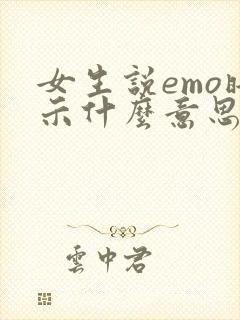 女生説emo
示什麼意思
雲中君